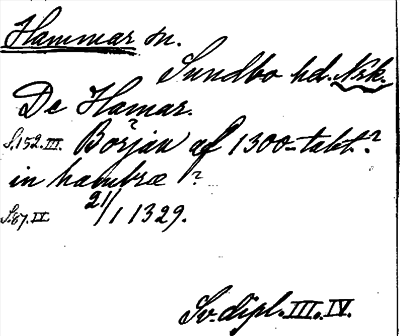 Hammar sn.
Sundbo hd. Nrk.
De Hamar.
S. 152. III. Början af 1300-talet?
in hambræ?
S. 67. IV 21/1 1329.
Sv. dipl. III. IV.